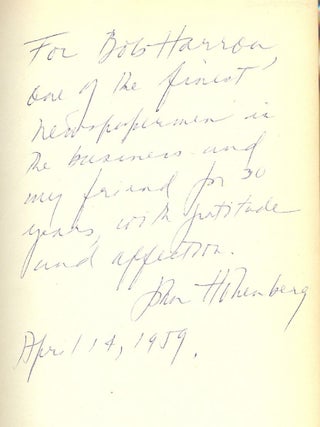 For Bob Harron
one of the finest
newspapermen in
the business and
my friend for 30
years, with gratitude
and affection.
John Hohenberg
April 14, 1959.